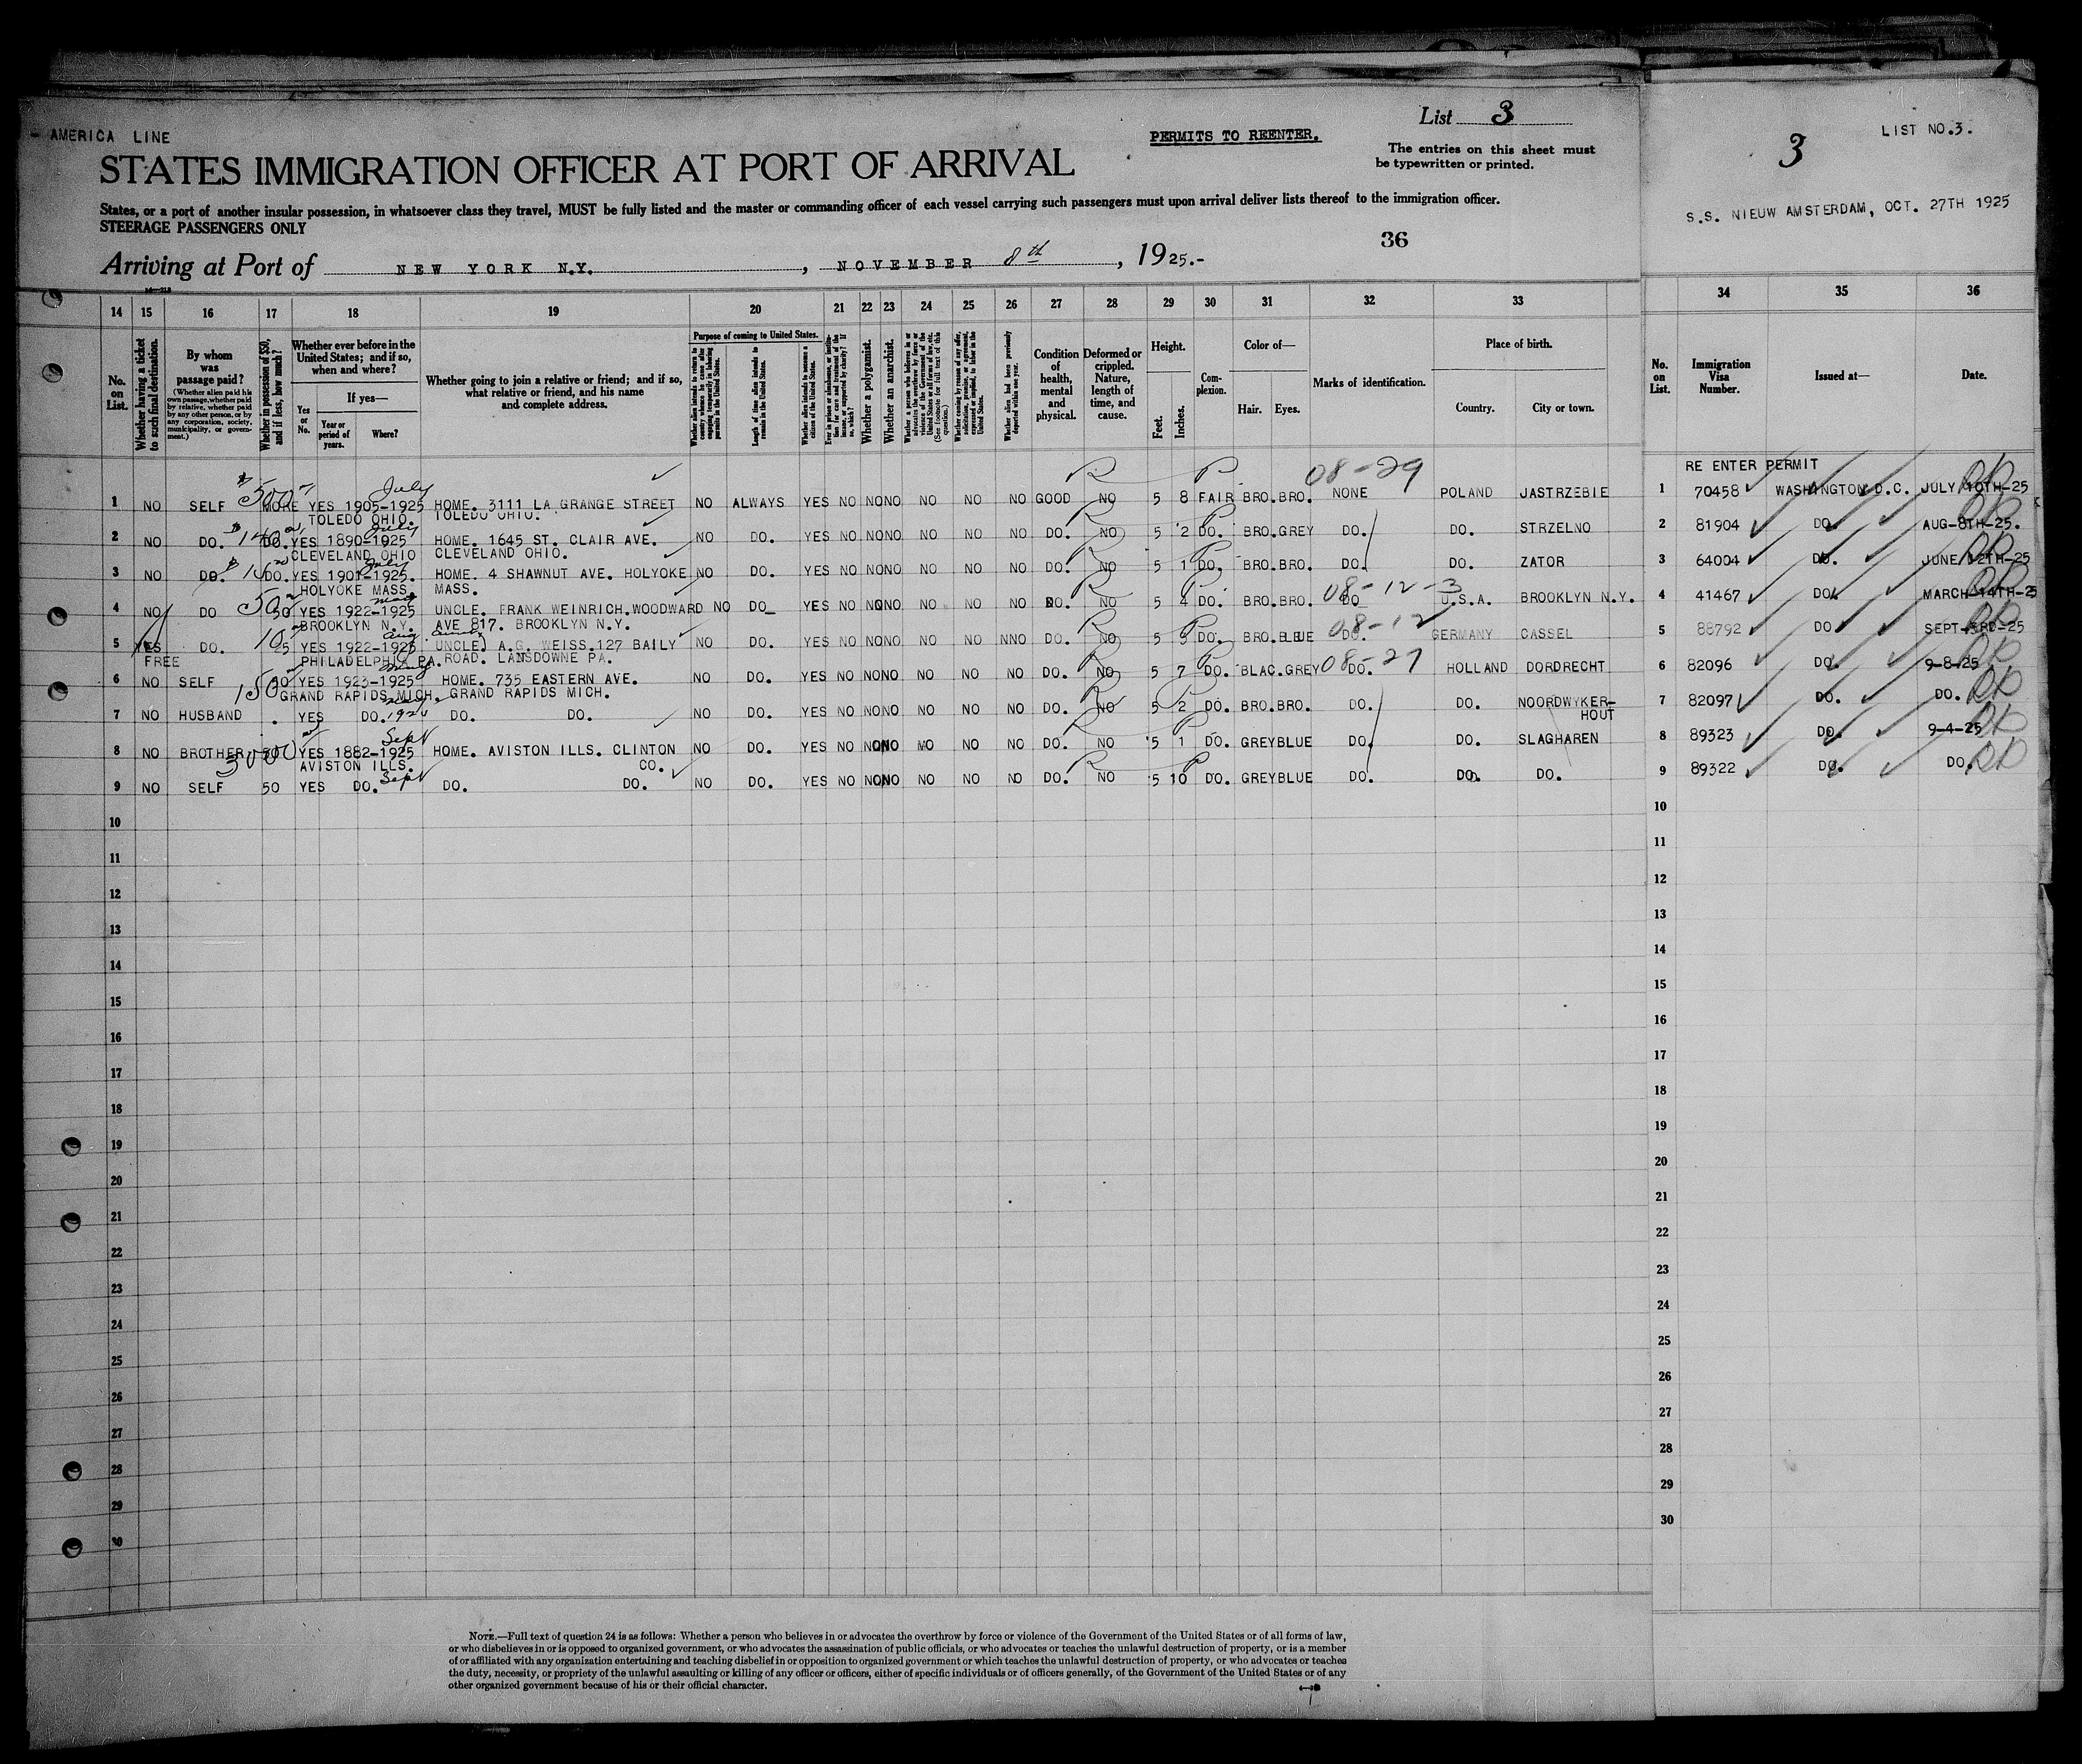 - AMERICA LINE
PERMITS TO REENTER.
List 3
The entries on this sheet must
be typewritten or printed.
STATES IMMIGRATION OFFICER AT PORT OF ARRIVAL
States, or a port of another insular possession, in whatsoever class they travel, MUST be fully listed and the master or commanding officer of each vessel carrying such passengers must upon arrival deliver lists thereof to the immigration officer.
STEERAGE PASSENGERS ONLY
36
Arriving at Port of NEW YORK N.Y. , NOVEMBER 8th , 1925.-
3
LIST NO.3.
S.S. NIEUW AMSTERDAM, OCT. 27TH 1925
14 15 16 17 18 19 20 21 22 23 24 25 26 27 28 29 30 31 32 33 34 35 36
No. on List.
Whether having a ticket to such final destination.
By whom was passage paid?
(Whether alien paid his own passage, whether paid by relative, whether paid by any other person, or by any corporation, society, municipality, or government.)
Whether in possession of $50, and if less, how much?
Whether ever before in the United States; and if so, when and where?
If yes—
Yes or No.
Year or period of years.
Where?
Whether going to join a relative or friend; and if so, what relative or friend, and his name and complete address.
Purpose of coming to United States.
Length of time alien intends to remain in the United States.
Whether alien intends to become a citizen of the United States.
Whether a polygamist.
Whether an anarchist.
Condition of health, mental and physical.
Deformed or crippled. Nature, length of time, and cause.
Height.
Feet.
Inches.
Complexion.
Color of—
Hair. Eyes.
Marks of identification.
Place of birth.
Country. City or town.
No. on List.
Immigration Visa Number.
Issued at—
Date.
08-29
RE ENTER PERMIT
1 NO SELF $ 500 MORE YES 1905-1925 July HOME. 3111 LA GRANGE STREET NO ALWAYS YES NO NO NO NO NO NO GOOD NO 5 8 FAIR BRO. BRO. NONE POLAND JASTRZEBIE 1 70458 WASHINGTON D.C. JULY 10TH-25
TOLEDO OHIO. TOLEDO OHIO.
2 NO DO. DO. YES 1890-1925 July HOME. 1645 ST. CLAIR AVE. NO DO. YES NO NO NO NO NO NO DO. NO 5 2 DO. BRO. GREY DO. DO. STRZELNO 2 81904 DO. AUG-8TH-25.
CLEVELAND OHIO CLEVELAND OHIO.
3 NO DO. DO. YES 1901-1925. July HOME. 4 SHAWNUT AVE. HOLYOKE NO DO. YES NO NO NO NO NO NO DO. NO 5 1 DO. BRO. BRO. DO. DO. ZATOR 3 64004 DO. JUNE 12TH-25
HOLYOKE MASS. MASS.
08-12-3
4 NO DO 50 YES 1922-1925 UNCLE. FRANK WEINRICH. WOODWARD NO DO. YES NO NO NO NO NO NO DO. NO 5 4 DO. BRO. BRO. DO U.S.A. BROOKLYN N.Y. 4 41467 DO. MARCH-14TH-25
BROOKLYN N.Y. AVE 817. BROOKLYN N.Y.
08-12
5 YES DO. YES 1922-1925 Aug UNCLE. A.G. WEISS. 127 BAILY NO DO. YES NO NO NO NO NO NNO DO. NO 5 DO. BRO. BLUE DO. GERMANY CASSEL 5 88792 DO SEPT-3RD-25
FREE PHILADELPHIA PA. ROAD. LANSDOWNE PA.
08-27
6 NO SELF 150 YES 1923-1925 HOME. 735 EASTERN AVE. NO DO. YES NO NO NO NO NO NO DO. NO 5 7 DO. BLAC. GREY DO. HOLLAND DORDRECHT 6 82096 DO. 9-8-25
GRAND RAPIDS MICH. GRAND RAPIDS MICH.
7 NO HUSBAND . YES DO. DO. DO. NO DO. YES NO NO NO NO NO NO DO. NO 5 2 DO. BRO. BRO. DO. DO. NOORDWYKER-HOUT 7 82097 DO. DO.
8 NO BROTHER YES 1882-1925 Sept HOME. AVISTON ILLS. CLINTON NO DO. YES NO NO NO NO NO NO DO. NO 5 1 DO. GREY BLUE DO. DO. SLAGHAREN 8 89323 DO. 9-4-25
AVISTON ILLS. CO.
9 NO SELF 50 YES DO. Sept DO. DO. NO DO. YES NO NO NO NO NO NO DO. NO 5 10 DO. GREY BLUE DO. DO. DO. 9 89322 DO. DO.
10 10
11 11
12 12
13 13
14 14
15 15
16 16
17 17
18 18
19 19
20 20
21 21
22 22
23 23
24 24
25 25
26 26
27 27
28 28
29 29
30 30
NOTE.—Full text of question 24 is as follows: Whether a person who believes in or advocates the overthrow by force or violence of the Government of the United States or of all forms of law,
or who disbelieves in or is opposed to organized government, or who advocates the assassination of public officials, or who advocates or teaches the unlawful destruction of property, or is a member
of or affiliated with any organization entertaining and teaching disbelief in or opposition to organized government or which teaches the unlawful destruction of property, or who advocates or teaches
the duty, necessity, or propriety of the unlawful assaulting or killing of any officer or officers, either of specific individuals or of officers generally, of the Government of the United States or of any
other organized government because of his or their official character.